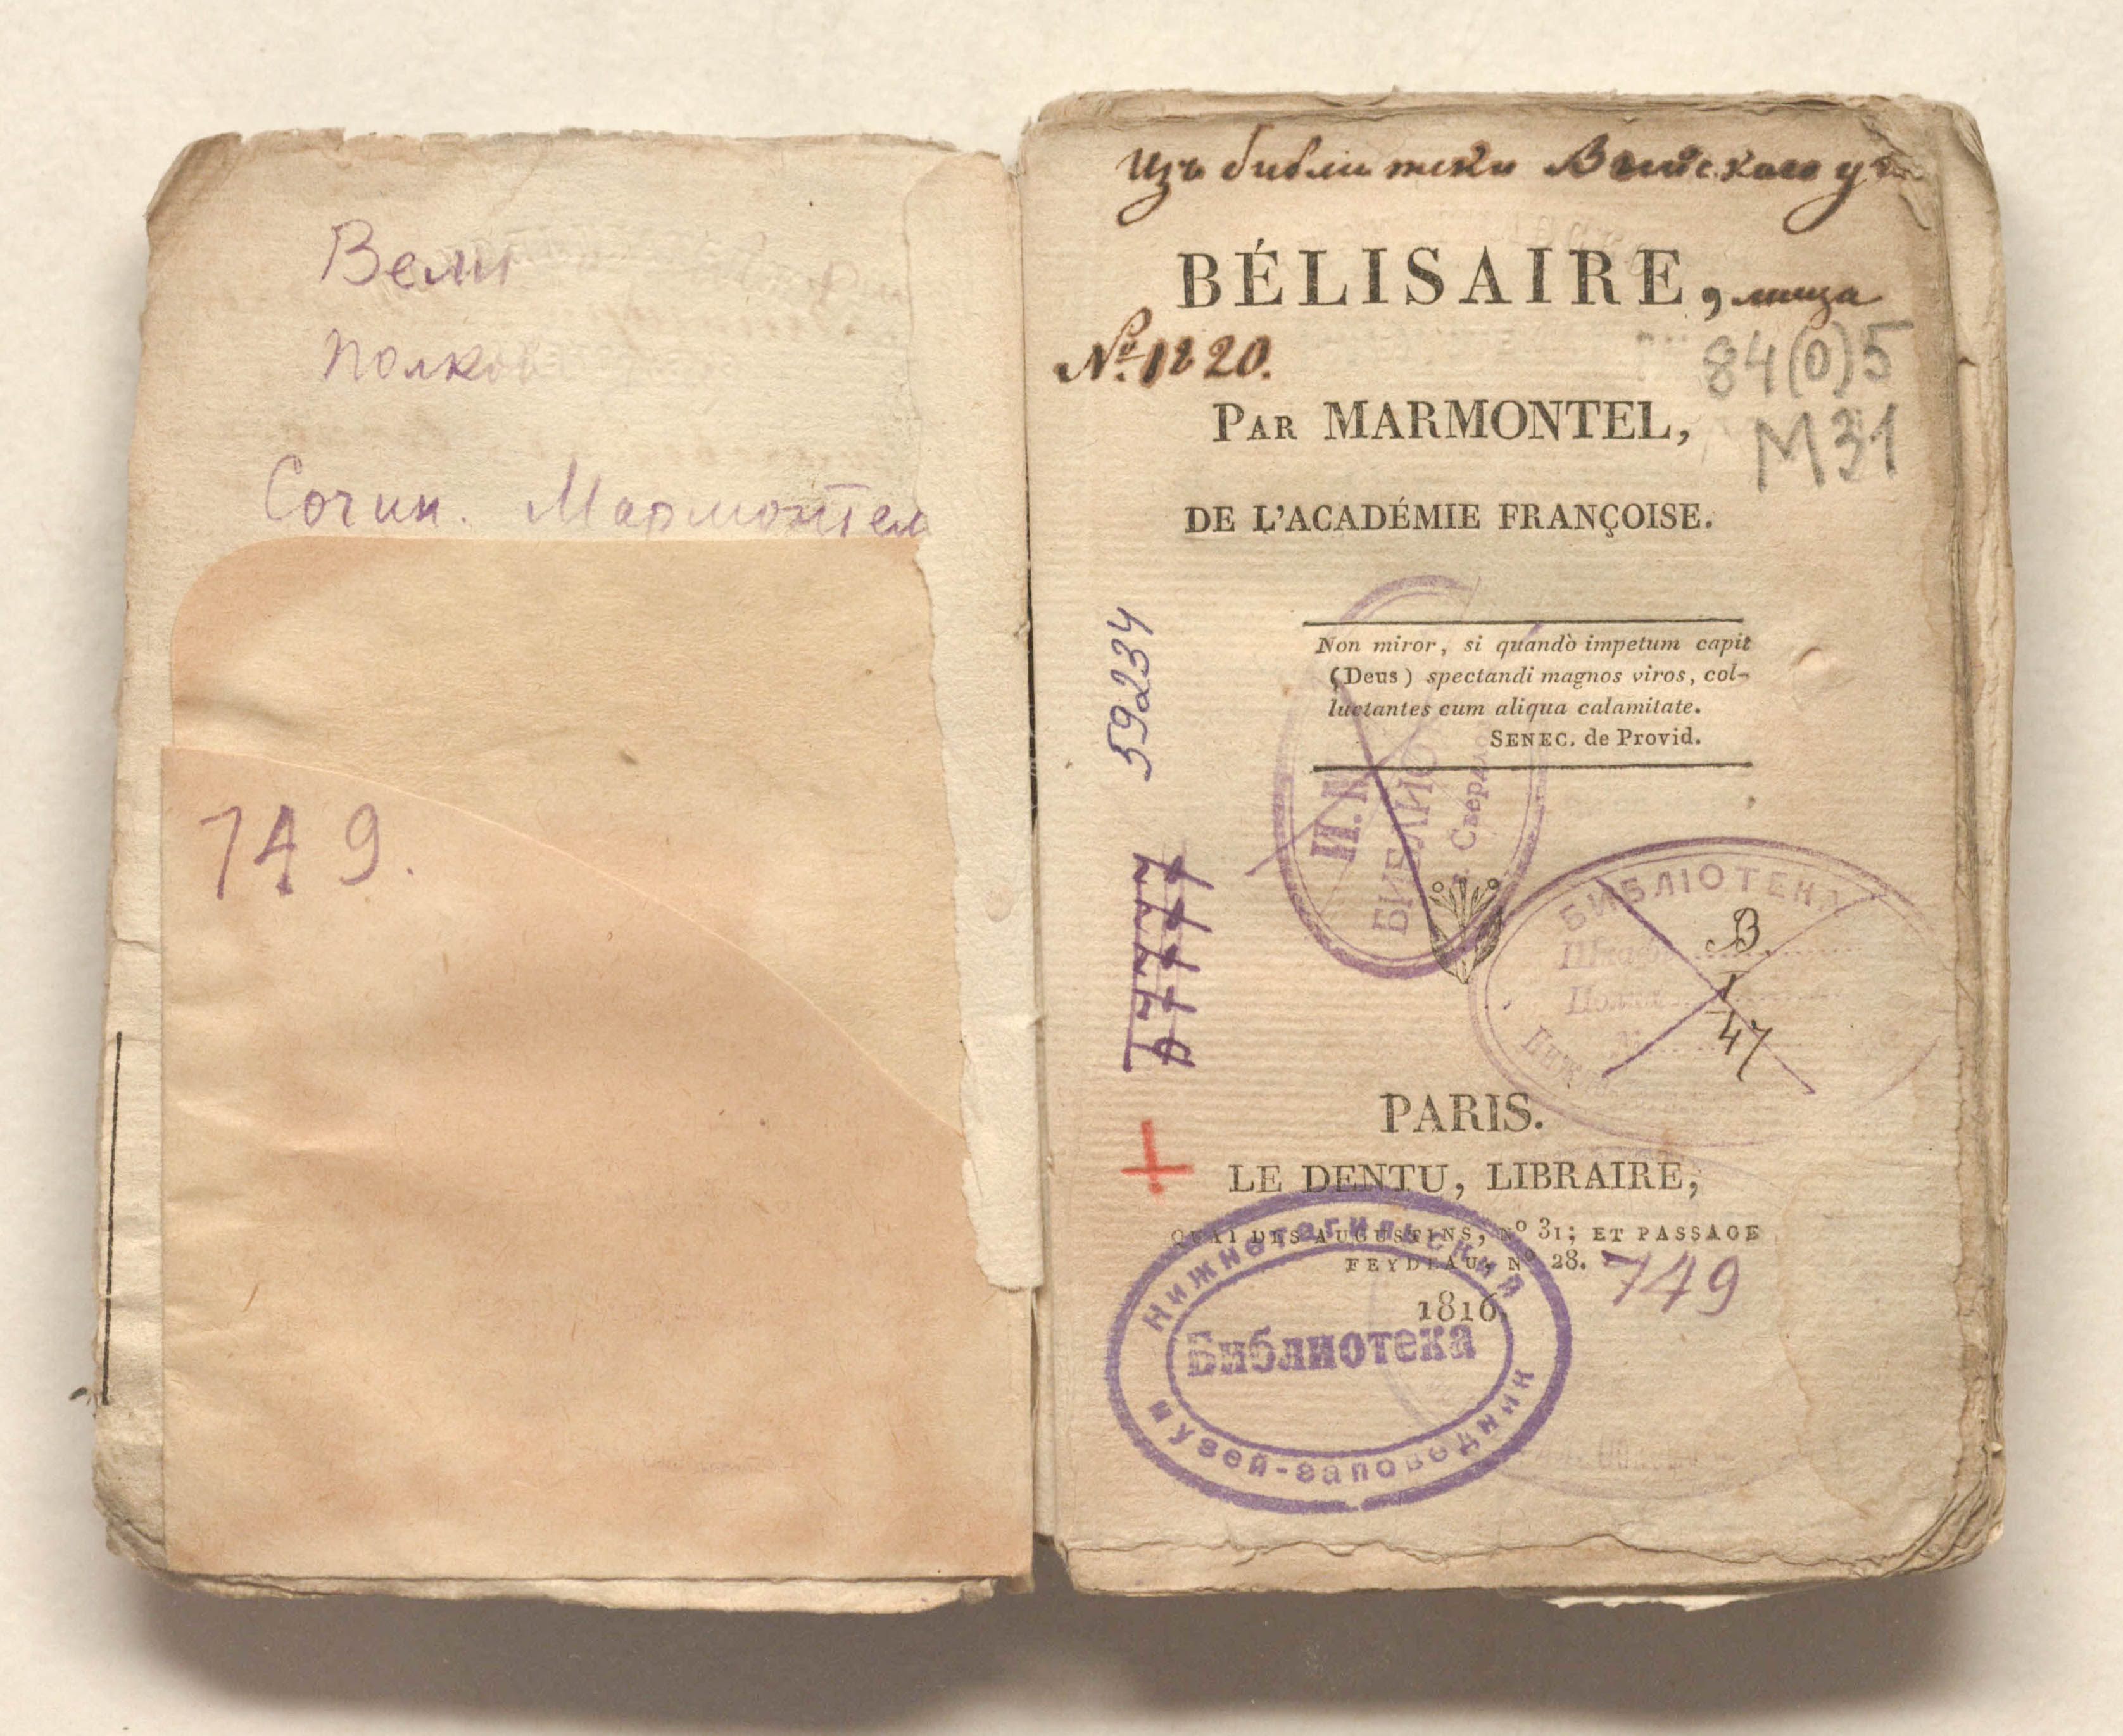 Вели
Полков
Сочин. Мармонтел
749.
Изъ библиотеки Выйскаго учи
BÉLISAIRE,
лища
№ 1820.
84(0)5
PAR MARMONTEL,
М31
DE L'ACADÉMIE FRANÇOISE.
Non miror, si quandò impetum capit
(Deus) spectandi magnos viros, col-
luctantes cum aliqua calamitate.
SENEC. de Provid.
59234
БИБЛИО
Сверд
БИБЛІОТЕКА
В.
1
47
PARIS.
LE DENTU, LIBRAIRE,
QUAI DES AUGUSTINS, Nº 31; ET PASSAGE
FEYDEAU, Nº 28.
749
1816.
Нижнетагильский
Библиотека
музей-заповедник